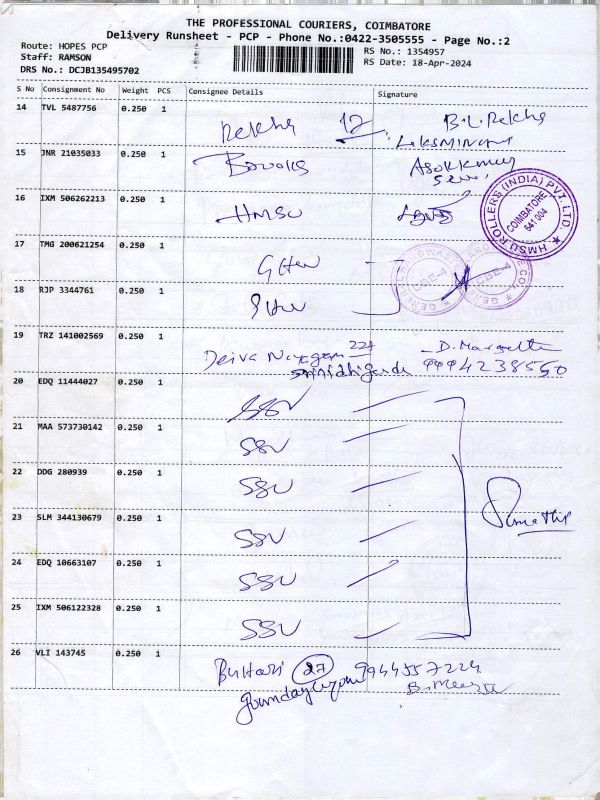 THE PROFESSIONAL COURIERS, COIMBATORE
Delivery Runsheet - PCP - Phone No.:0422-3505555 - Page No.:2
Route: HOPES PCP
Staff: RAMSON
DRS No.: DCJB135495702
RS No.: 1354957
RS Date: 18-Apr-2024
S No Consignment No Weight PCS Consignee Details Signature
14 TVL 5487756 0.250 1 Rekha 12 B.L.Rekha
15 JNR 21035033 0.250 1 Brooks
16 IXM 506262213 0.250 1 HMSU
HMSU ROLLERS (INDIA) PVT. LTD. ★
COIMBATORE
641 004
17 TMG 200621254 0.250 1
CBE-4
CBE-4
18 RJP 3344761 0.250 1
19 TRZ 141002569 0.250 1 Deiva Nayagam 227
9994238550
20 EDQ 11444027 0.250 1 SSV
21 MAA 573730142 0.250 1 SSV
22 DDG 280939 0.250 1 SSV
23 SLM 344130679 0.250 1 SSV
24 EDQ 10663107 0.250 1 SSV
25 IXM 506122328 0.250 1 SSV
26 VLI 143745 0.250 1 Buhari 27 9944557224